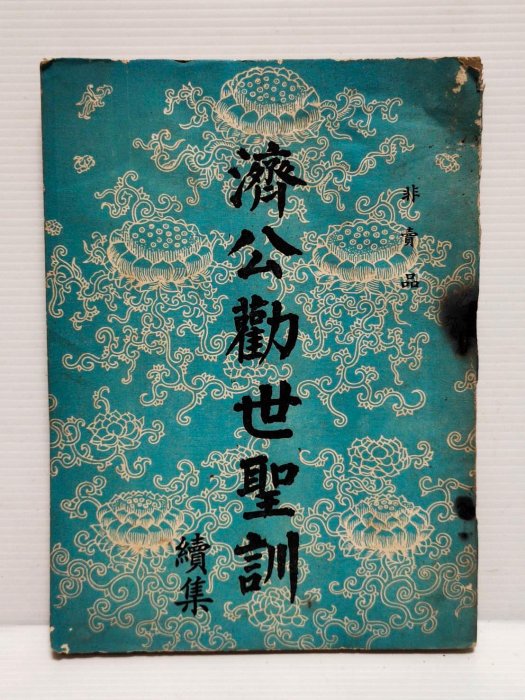 非賣品
濟公勸世聖訓
續集